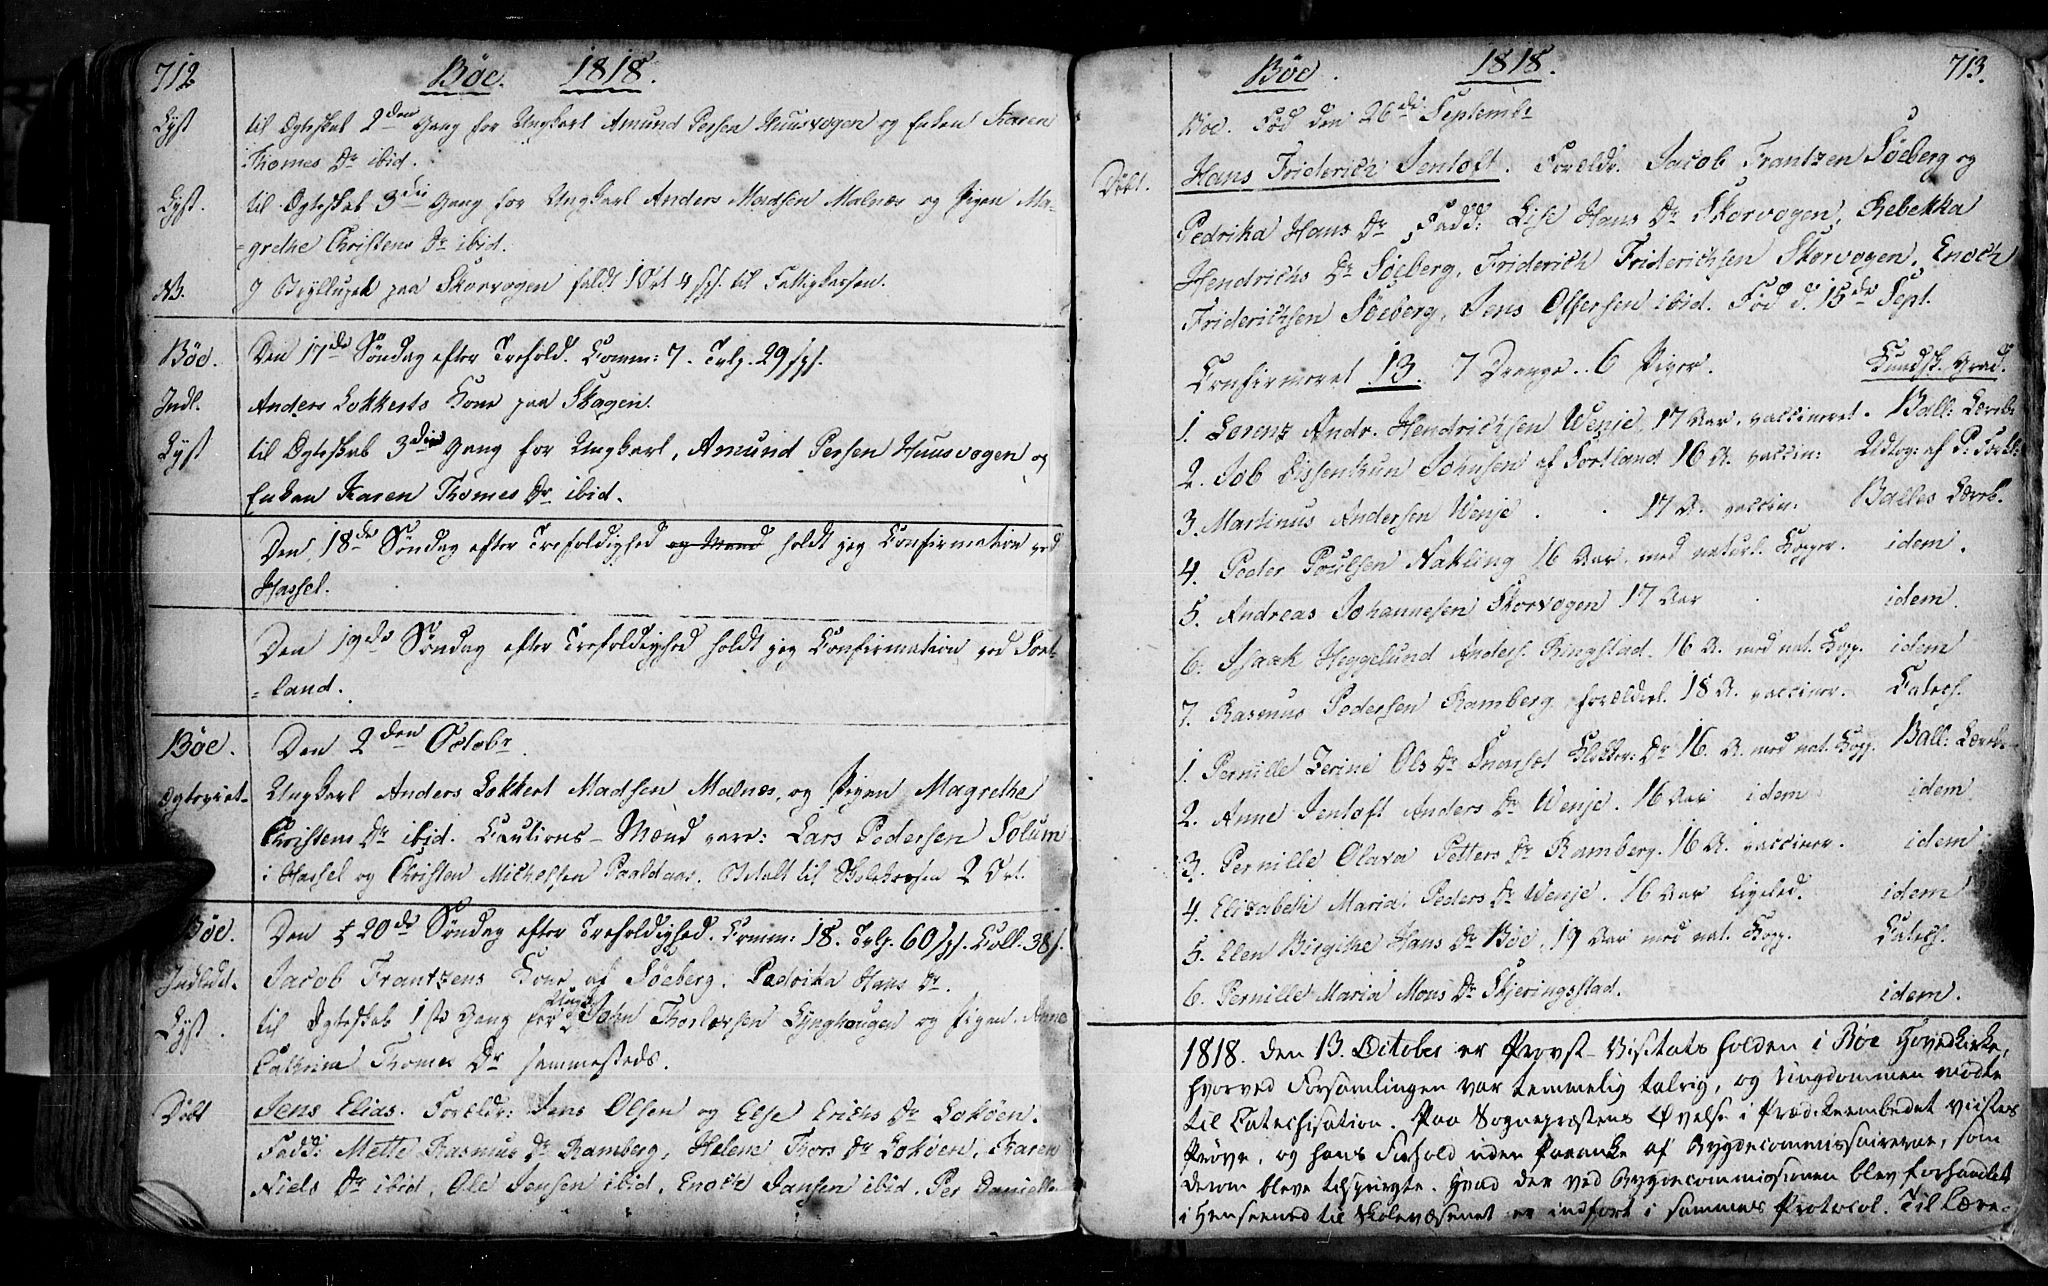 712
Böe. 1818.
Lyst til Ægteskab 2den Gang for Ungkarl Amund Persen Huusvogen og Enken Karen
Thomes Dr ibid.
Lyst. til Ægteskab 3die Gang for Ungkarl Anders Madsen Malnæs og Pigen Ma-
=grethe Christens Dr ibid.
NB. I Brylluppet paa Skorvogen faldt 1 Ort 4 sh. til Fattigkassen.
Böe. Den 17de Söndag efter Trefold. Comm: 7. Tvlg. 29 sh.
Indl. Anders Lokkerts Kone paa Skagen.
Lyst til Ægteskab 3die Gang for Ungkarl, Amund Persen Huusvogen og
Enken Karen Thomes Dr ibid.
Den 18de Söndag efter Trefoldighed holdt jeg Confirmation ved
Hassel.
Den 19de Söndag efter Trefoldighed holdt jeg Confirmation ved Sort-
=land.
Böe. Den 2den Octobr
Ægteviet- Ungkarl Anders Lokkert Madsen Malnæs, og Pigen Magrethe
Christens Dr ibid. Cautions-Mænd vare: Lars Pedersen Solum
i Hassel og Christen Michelsen 2 Ort.
Böe. Den 20de Söndag efter Trefoldighed. Comm: 18. Tvlg. 60 sh. Coll. 38 s.
Indledt. Jacob Frantzens Kone af Söeberg. Pedrika Hans Dr.
Lyst. til Ægteskab 1ste Gang for Ungk. John Thorlæfsen Lynghaugen og Pigen Anne
Cathrina Thomes Dr sammesteds.
Döbt Jens Elias. Forældr: Jens Olsen og Else Erichs Dr Loköen.
Fadd: Mette Rasmus Dr Ramberg, Helene Thors Dr Loköen, Karen
Niels Dr ibid, Ole Jensen ibid, Enoch Jansen ibid. Per Daniels
713.
Böe. 1818.
Böe. Fød den 26de Septembr
Döbt. Hans Friderich Jentoft. Forældr. Jacob Frantzen Söeberg og
Pedrika Hans Dr Fadd: Lise Hans Dr Skorvogen, Rebekka
Hendrichs Dr Söeberg, Friderich Friderichsen Skorvogen, Enoch
Friderichsen Söeberg, Jens Offersen ibid. Fød d. 15de Sept.
Confirmeret 13. 7 Drenge. 6 Piger. Kundsk. Grad.
1. Lorenz Andr. Hendrichsen Wenje, 17 Aar. vaccineret. Ball: Læreb.
2. Job Dissenkun Johnsen af Sortland 16 A. vaccin:
3. Martinus Andersen Wenje . . 17 A. vaccin. Balles Læreb.
4. Peder Poulsen Nakling 16 Aar. med naturl. Kopper. idem.
5. Andreas Johannesen Skorvogen 17 Aar idem.
6. Isaak Heggelund Anders. Ringstad. 16 A. med nat. Kopp. idem
7. Rasmus Pedersen Ramberg, forældrel. 18 A. vacciner. Catech.
1. Pernille Zerine Ols Dr Klokker: Dr 16. A. med nat. Kopp. Ball: Lærebo
2. Anne Jentoft Anders Dr Wenje. 16 Aar idem idem
3. Pernille Olava Petters Dr Ramberg. 16 A. vacciner. idem
4. Elisabeth Maria Peders Dr Wenje. 16 Aar ligeled. idem
5. Elen Birgithe Hans Dr Böe, 19 Aar med nat. Kopp. Catech.
6. Pernille Maria Mons Dr Skjeringsstad. idem.
1818. den 13. October er Provst-Visitats holden i Böe Hovedkirke,
hvorved Forsamlingen var temmelig talrig, og Ungdommen mødte
til Catechisation. Paa Sognepræstens Øvelse i Prædikeembedet viistes
Prøve, og hans Forhold uden Paaanke af Bygdecommissairerne, som
derom bleve tilspurgte. Hvad der ved Bygdecommissionen blev forhandlet
i Henseende til Skolevæsenet er indført i sammes Protocol. Til Lære-